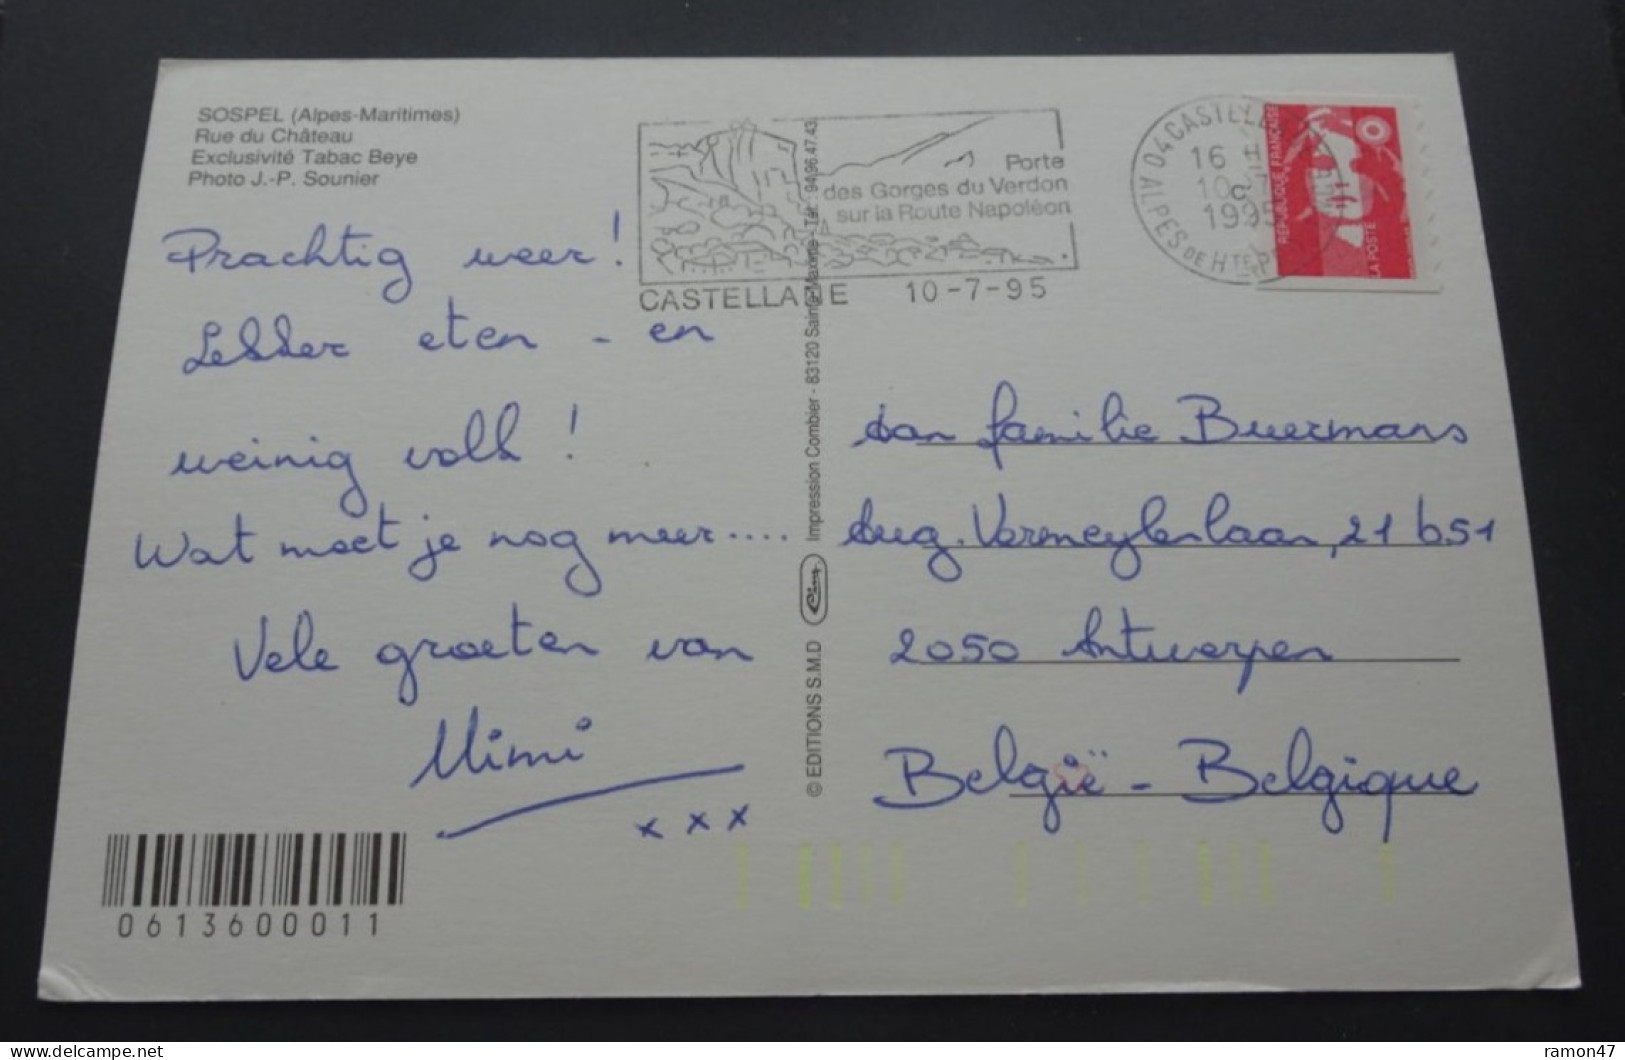 SOSPEL (Alpes-Maritimes)
Rue du Château
Exclusivité Tabac Beye
Photo J.-P. Sounier
Prachtig weer!
Lekker eten - en
weinig volk!
Wat moet je nog meer....
Vele groeten van
Mimi
x x x
0613600011
Porte
des Gorges du Verdon
sur la Route Napoléon
CASTELLANE 10-7-95
© EDITIONS S.M.D Impression Combier - 83120 Sainte Maxime - Tél. : 94.96.47.43
04 CASTELLANE
16 H
10-7
1995
ALPES DE HTE P
REPUBLIQUE FRANÇAISE
LA POSTE
aan familie Buermans
Aug. Vermeylenlaan, 21 b51
2050 Antwerpen
België - Belgique
ramon47